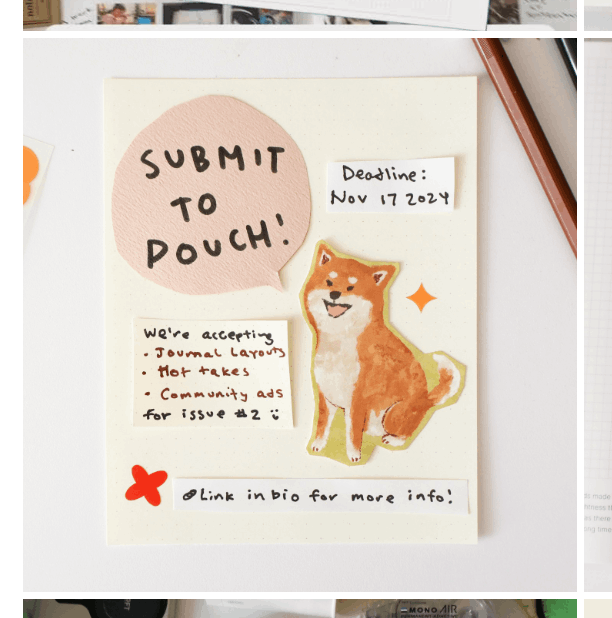 SUBMIT
TO
POUCH!
Deadline:
Nov 17 2024
We're accepting
• Journal Layouts
• Hot takes
• Community ads
for issue #2 :)
Link in bio for more info!
MONO AIR